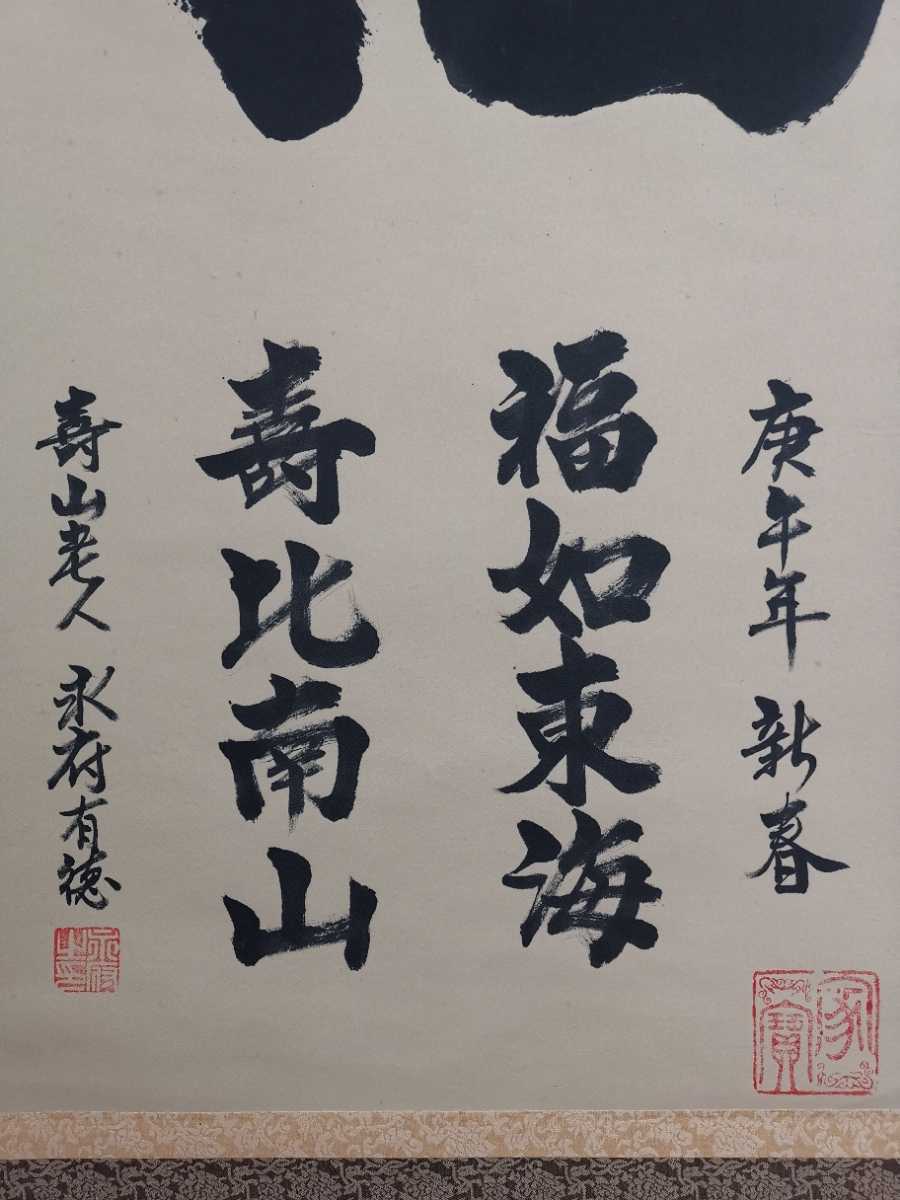 庚午年 新春
福如東海
壽比南山
壽山老人 永府有徳
家寶